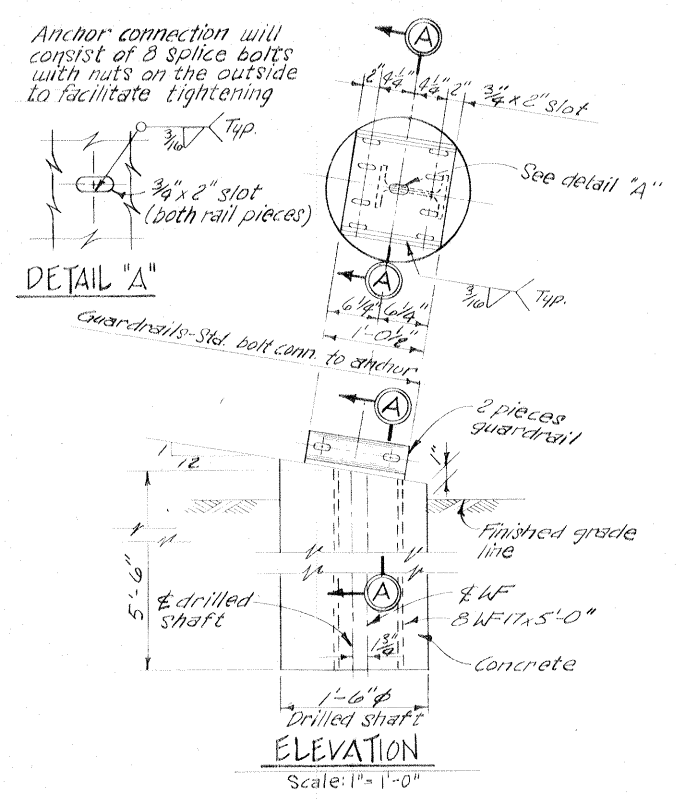 Anchor connection will
consist of 8 splice bolts
with nuts on the outside
to facilitate tightening
A
2" 4¼" 4¼" 2" ¾" x 2" slot
3/16 Typ.
¾" x 2" slot
(both rail pieces)
DETAIL "A"
See detail "A"
A
3/16 Typ.
6¼" 6¼"
1'-0½"
Guardrails-Std. bolt conn. to anchor
A
2 pieces
guardrail
1
12
1"
Finished grade
line
5'-6"
A
℄ drilled
shaft
℄ WF
8 WF 17 x 5'-0"
1¾"
Concrete
1'-6"φ
Drilled shaft
ELEVATION
Scale: 1" = 1'-0"